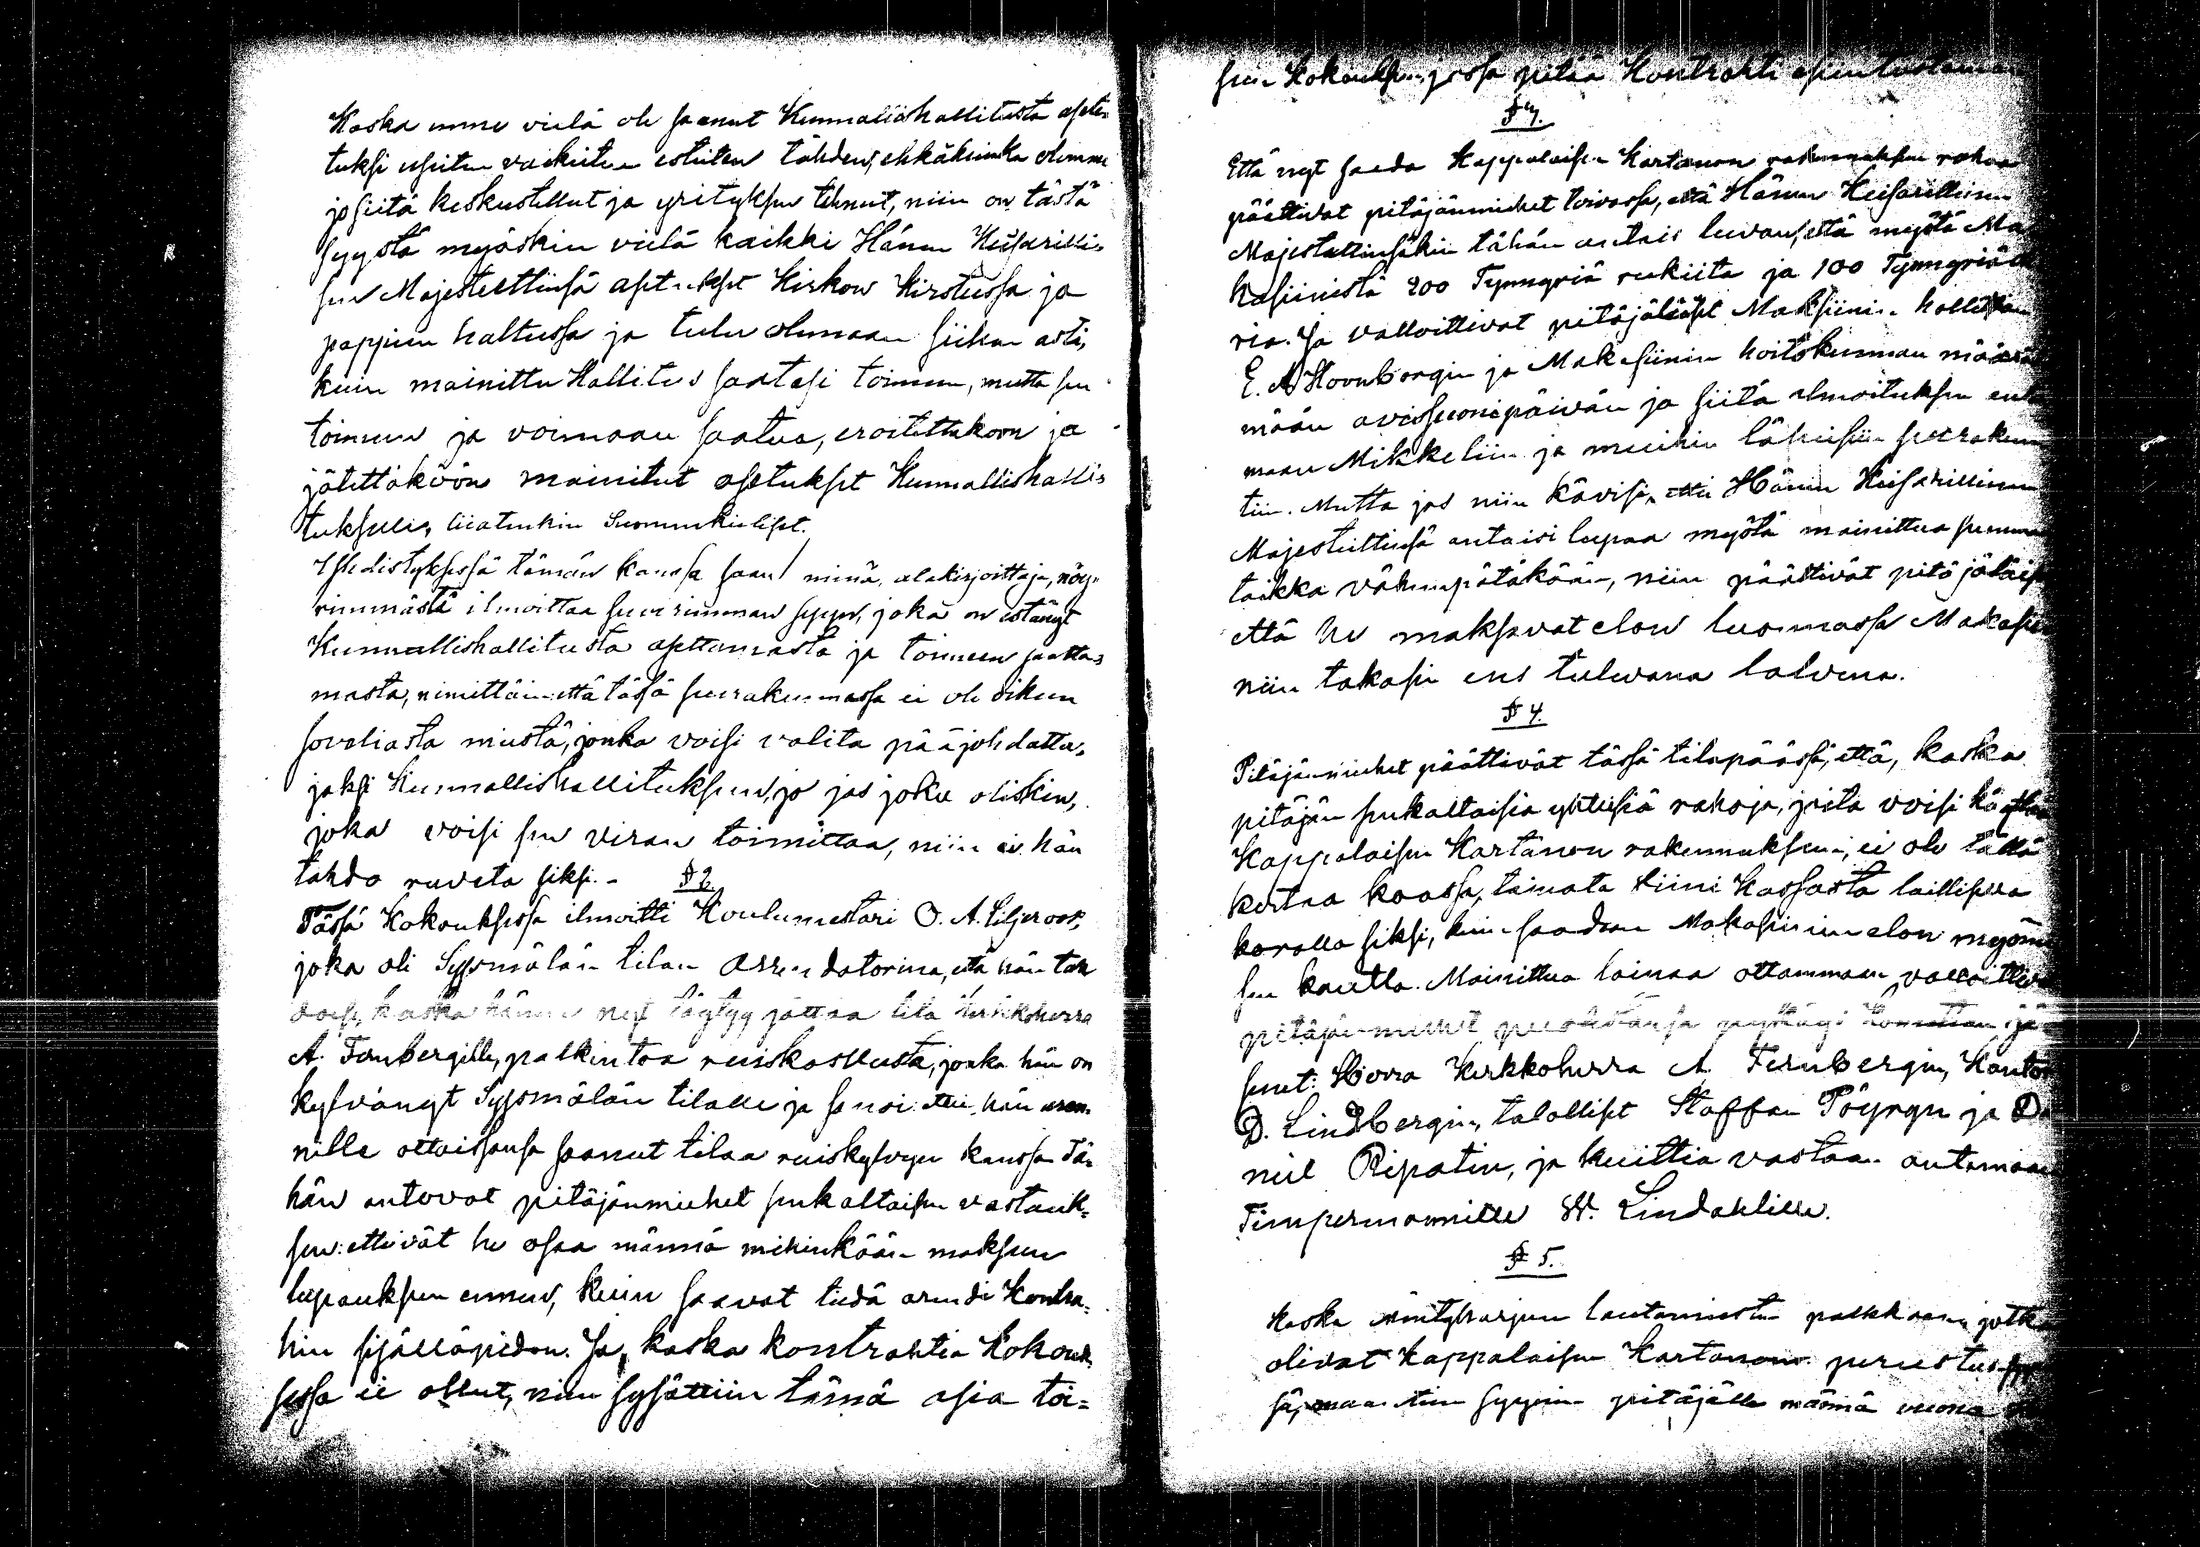 Koska emme vielä ole saanut Kunnallishallitusta asete=
tuksi useiten vaikeiten esteiten tähden, ehkäkuinka olemme
jo siitä keskustellut ja yrityksen tehnut, niin on tästä
syystä myöskin vielä kaikki Hänen Keisarilli=
sen Majesteettinsä asetukset Kirkon Kirstussa ja
pappien haltussa ja tulee olemaan siihen asti,
kuin mainittu Hallitus saatasi toimeen, mutta sen
toimeen ja voimaan saatua, eroitettakoon ja
jätettäköön mainitut asetukset Kunnallishalli=
tukselle, liiatenkin Suomenkieliset.
Yhdistyksessä tämän kanssa saan minä, alakirjoittaja, nöy=
rimmästä ilmoittaa suurimman syyn, joka on estänyt
Kunnallishallitusta asettamasta ja toimeen saatta=
masta, nimittäin että tässä seurakunnassa ei ole oikeen
sovaliasta miestä, jonka voisi valita pääjohdatta=
jaksi Kunnallishallitukseen, jo jos joku oliskin,
joka voisi sen viran toimittaa, niin ei hän
tahdo ruveta siksi. -
§ 2.
Tässä Kokouksessa ilmoitti Koulumestari O. A. Liljeroos,
joka oli Syysmälän tilan Arrendatorina, että hän tah
doisi, koska hänen nyt täytyy jättää tila Kirkkoherra
A. Fernbergille, palkintoa ruiskasvusta, jonka hän on
kylvänyt Syysmälän tilalle ja sanoi ettei hän aren=
nille ottaissansa saanut tilaa ruiskylvyn kanssa Tä=
hän antovat pitäjänmiehet senkaltaisen vastauk=
sen: ettivät he osaa männä mihinkään maksun
lupauksen ennen, kuin saavat tietä arendi Kontra=
hin sisälläpidon. Ja, koska kontrahtia Kokouk=
sessa ei ollut, niin sysättiin tämä asia toi=
seen Kokoukseen, jossa pitää Kontrahti esiintuotaman
§ 3.
Että nyt saada Kappalaisen Kartanon rakennuksen rahaa
päättivat pitäjänmiehet toivossa, että Hänen Keisarillinen
Majesteettinsäkin tähän antais luvan, että myötä Ma
kasiinistä 200 Tynnyriä rukiita ja 100 Tynnyriä
ria. Ja valtoittivat pitäjäläiset Makasiinin hallitsian
E. A. Hornborgin ja Makasiinin hoitokunnan määrää
mään avissuonipäivän ja siitä ilmoituksen
maan Mikkeliin ja muihin läheisiin seurakun
tiin. Mutta jos niin kävisi, ettei Hänen Keisarillinen
Majesteettinsä antaisi lupaa myötä mainittua summaa
taikka vähempätäkään, niin päättivät pitäjäläiset
että he maksavat elon luomassa Makasii
niin takasin ens tulevana talvena.
§ 4.
Pitäjänmiehet päättivät tässä tilapäässä, että, koska
pitäjän senkaltaisia yhteisiä rahoja, joita voisi käyttää
Kappalaisen Kartanon rakennukseen, ei ole tällä
kertaa koossa, lainata Kassasta laillisella
korolla siksi, kuin saadaan Makasiinin elon myömi
sen kautta. Mainittua lainaa ottammaan valtoittivat
pitäjänmiehet
senet: Herra Kirkkoherra A. Fernbergin, Kantor
D. Lindbergin, talolliset Staffan Pöyryn ja Da
niel Ripatin, ja kuittia vastaan antamaan
Timpermannille W. Lindahlille.
§ 5.
Koska Mäntyharjun lautamiesten palkkaan, jotka
olivat Kappalaisen Kartanon perustus
sä, syynin pitäjälle männä vuona